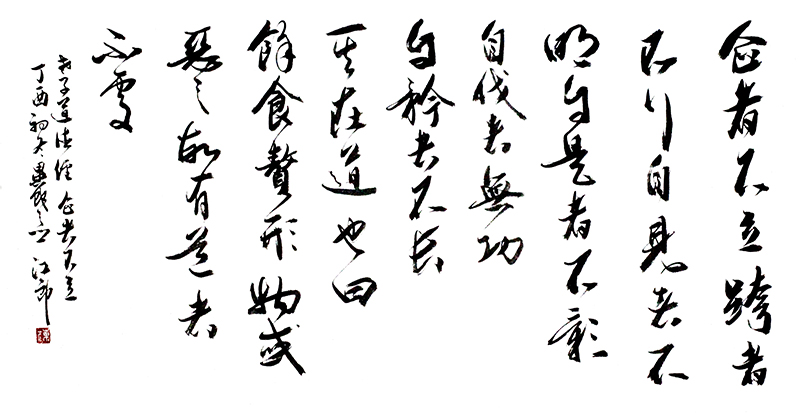 企者不立跨者
不行自見者不
明自是者不彰
自伐者無功
自矜者不長
其在道也曰
餘食贅形物或
惡之故有道者
不處
老子道德經企者不立
丁酉初冬 江郎